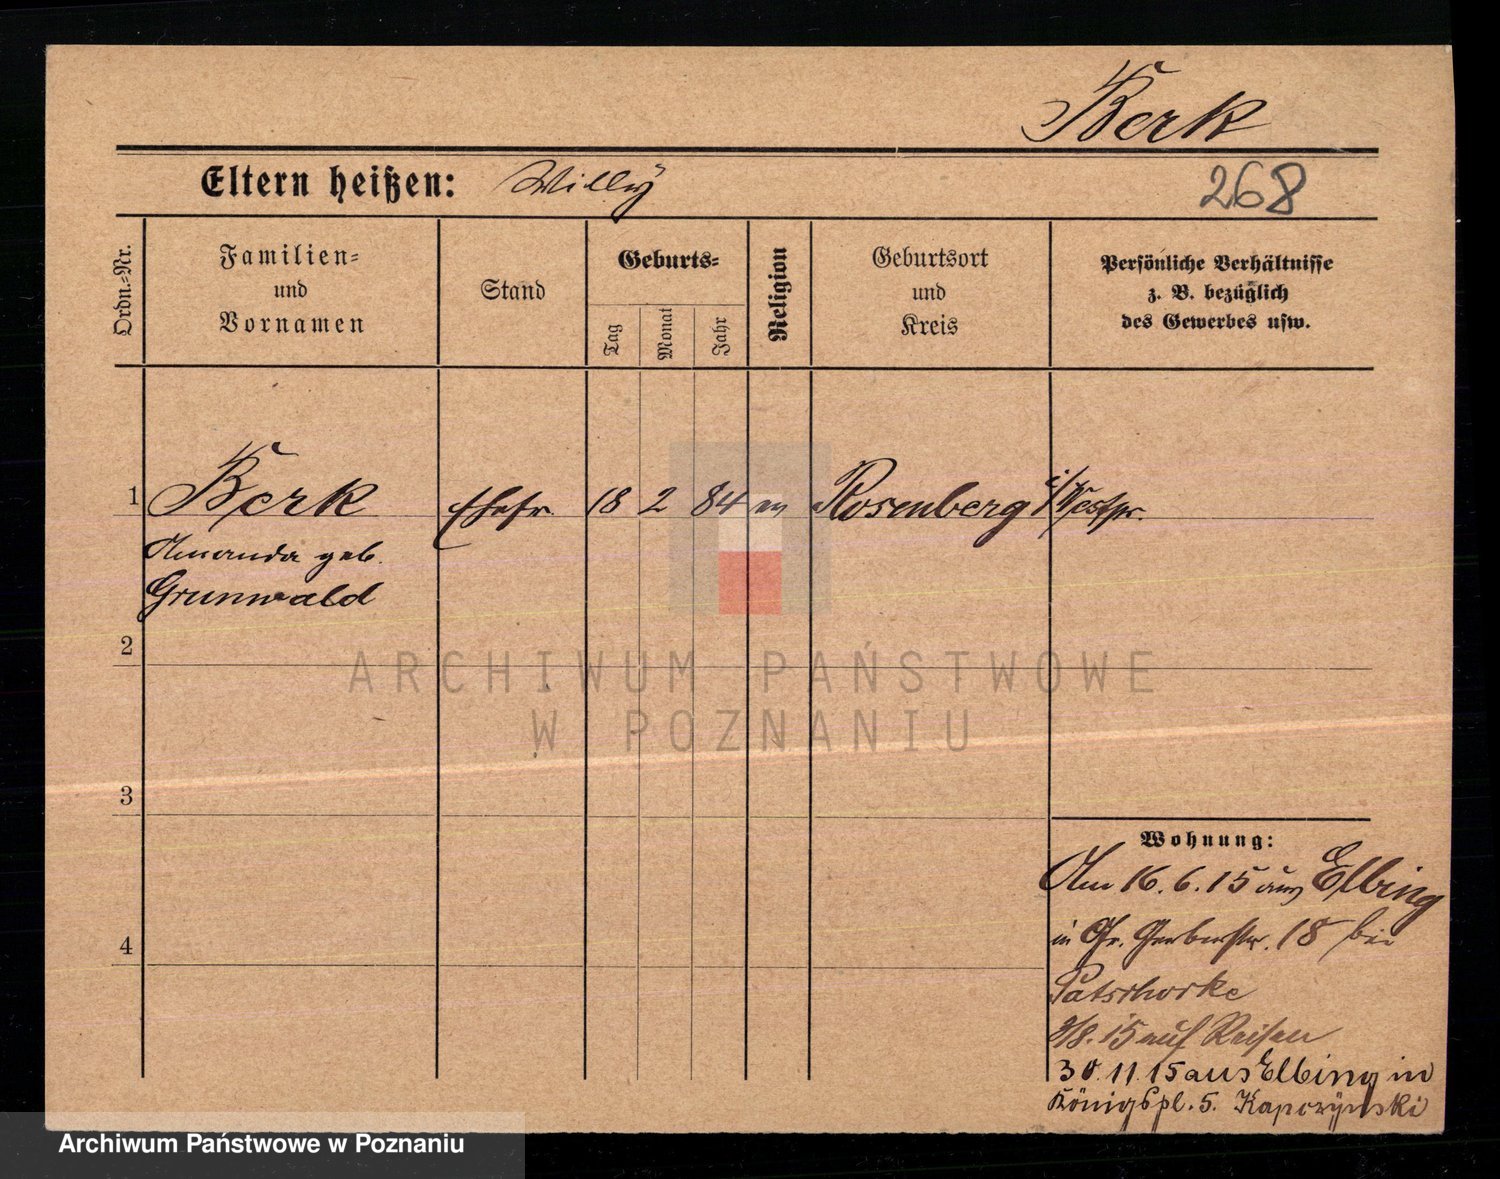 Berk
Eltern heißen: Willy
268
Ordn.-Nr.
Familien-
und
Vornamen
Stand
Geburts-
Tag
Monat
Jahr
Religion
Geburtsort
und
Kreis
Persönliche Verhältnisse
z. B. bezüglich
des Gewerbes usw.
1 Berk Ehefr. 18 2 84 Rosenberg i/Westpr.
Amanda geb.
Grunwald
2
3
4
Wohnung:
Am 16.6.15 aus Elbing
in Gr. Gerberstr. 18 bei
Patschorke
2/8.15 auf Reisen
30.11.15 aus Elbing in
Königspl. 5. Kapczynski
ARCHIWUM PAŃSTWOWE
W POZNANIU
Archiwum Państwowe w Poznaniu